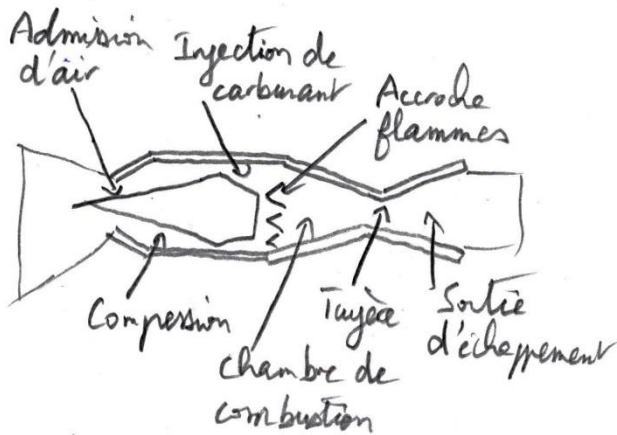 Admission
d'air
Injection de
carburant
Accroche
flammes
Compession
chambre de
combustion
Tuyère
Sortie
d'échappement